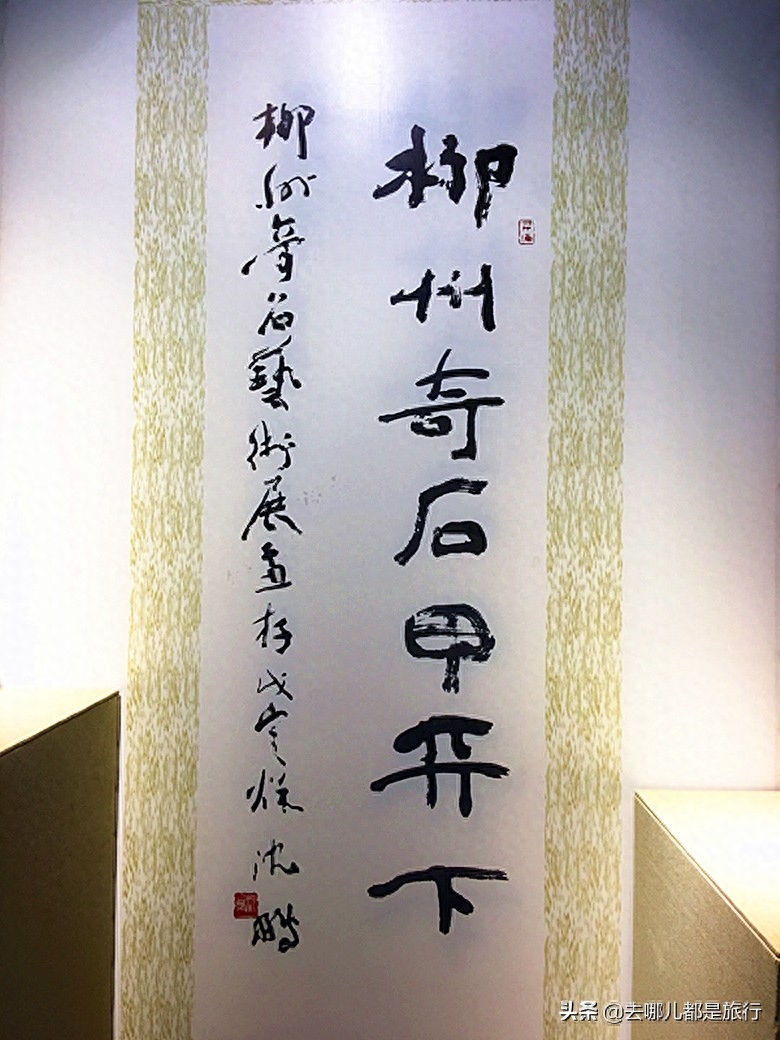 柳州奇石甲天下
柳州奇石藝術展惠存戊寅秋沈鵬
头条 @去哪儿都是旅行